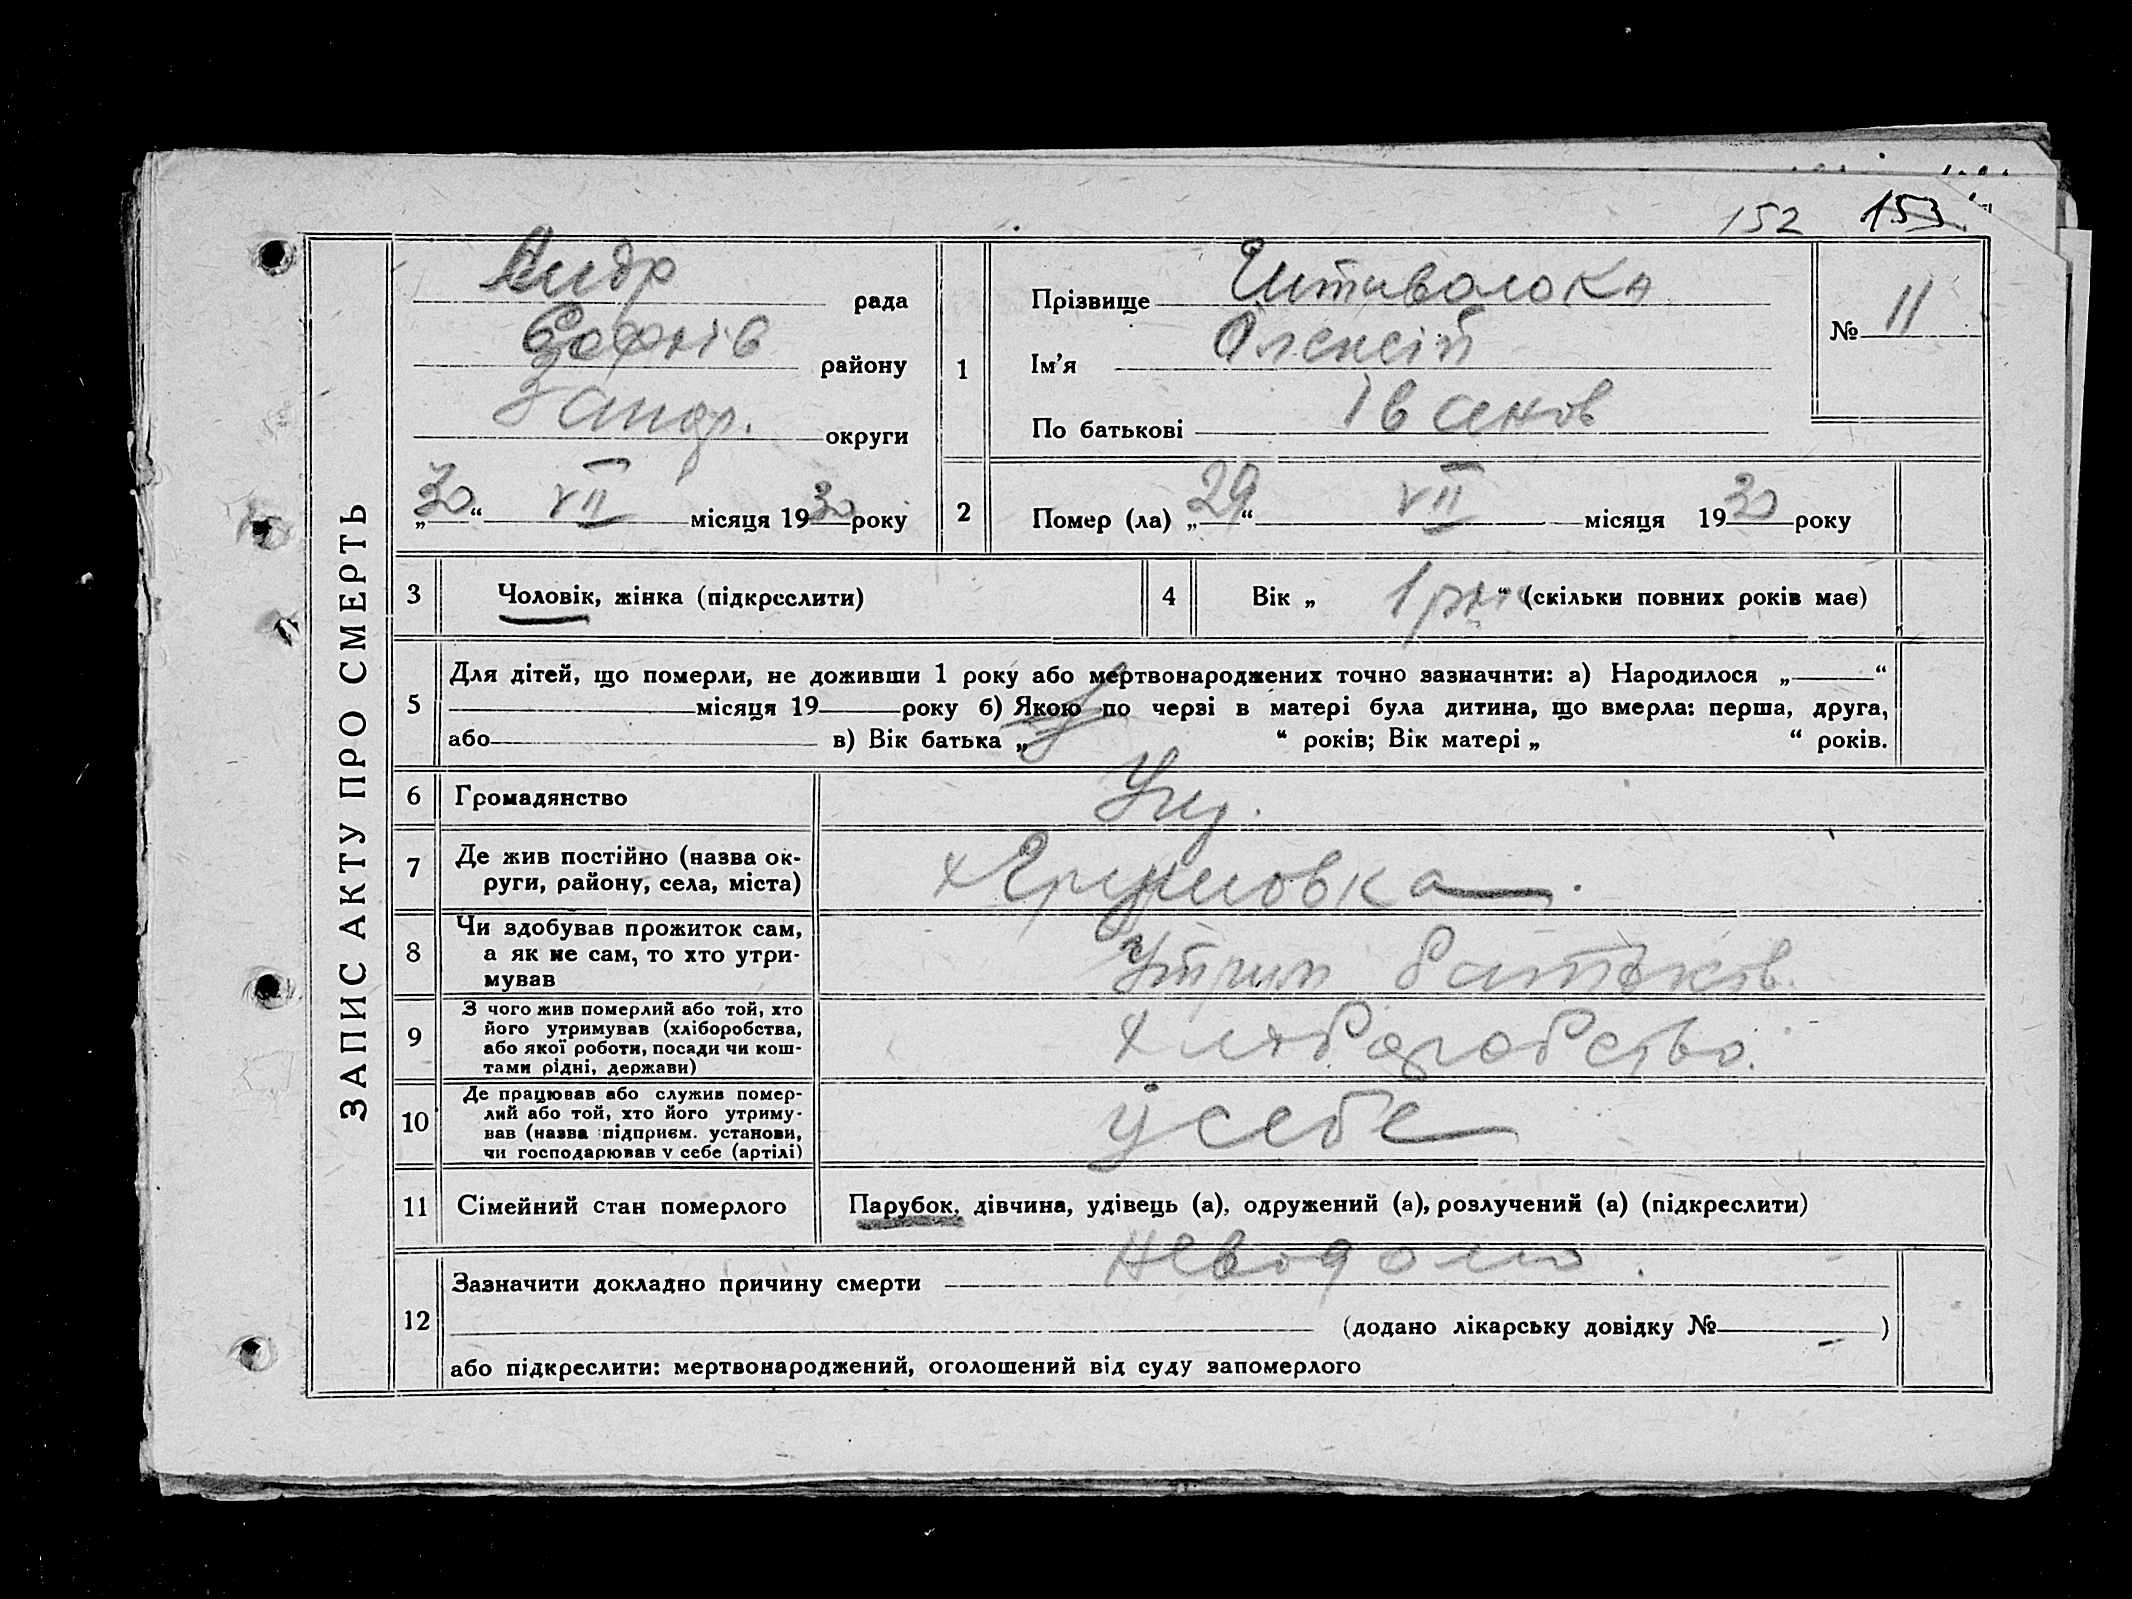 152 153
ЗАПИС АКТУ ПРО СМЕРТЬ
Андр рада
Софків району
Запор. округи
„30“ VII місяця 1930 року
1
Прізвище
Ім'я Олексій
По батькові Іванов
№ 11
2 Помер (ла) „29“ VII місяця 1930 року
3 Чоловік, жінка (підкреслити)
4 Вік „1 рік“ (скільки повних років має)
5 Для дітей, що померли, не доживши 1 року або мертвонароджених точно зазначити: а) Народилося „ “
місяця 19 року б) Якою по черзі в матері була дитина, що вмерла: перша, друга,
або в) Вік батька „ “ років; Вік матері „ “ років.
6 Громадянство Укр.
7 Де жив постійно (назва ок-
руги, району, села, міста)
х
8 Чи здобував прожиток сам,
а як не сам, то хто утри-
мував
Утрим батьків.
9 З чого жив померлий або той, хто
його утримував (хліборобства,
або якої роботи, посади чи кош-
тами рідні, держави)
Хліборобство.
10 Де працював або служив помер-
лий або той, хто його утриму-
вав (назва підприєм. установи,
чи господарював у себе (артілі)
у себе
11 Сімейний стан померлого Парубок, дівчина, удівець (а), одружений (а), розлучений (а) (підкреслити)
12 Зазначити докладно причину смерти невідомо.
(додано лікарську довідку № )
або підкреслити: мертвонароджений, оголошений від суду запомерлого